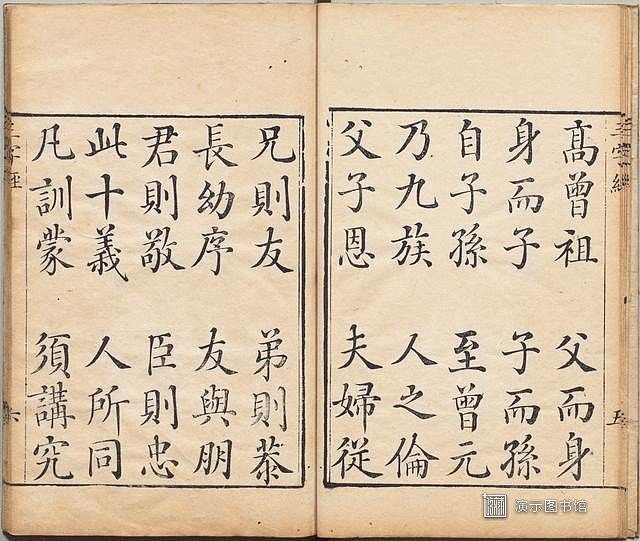 高曾祖 父而身
身而子 子而孫
自子孫 至曾元
乃九族 人之倫
父子恩 夫婦從
五
三字經
兄則友 弟則恭
長幼序 友與朋
君則敬 臣則忠
此十義 人所同
凡訓蒙 須講究
三字經
六
演示图书馆